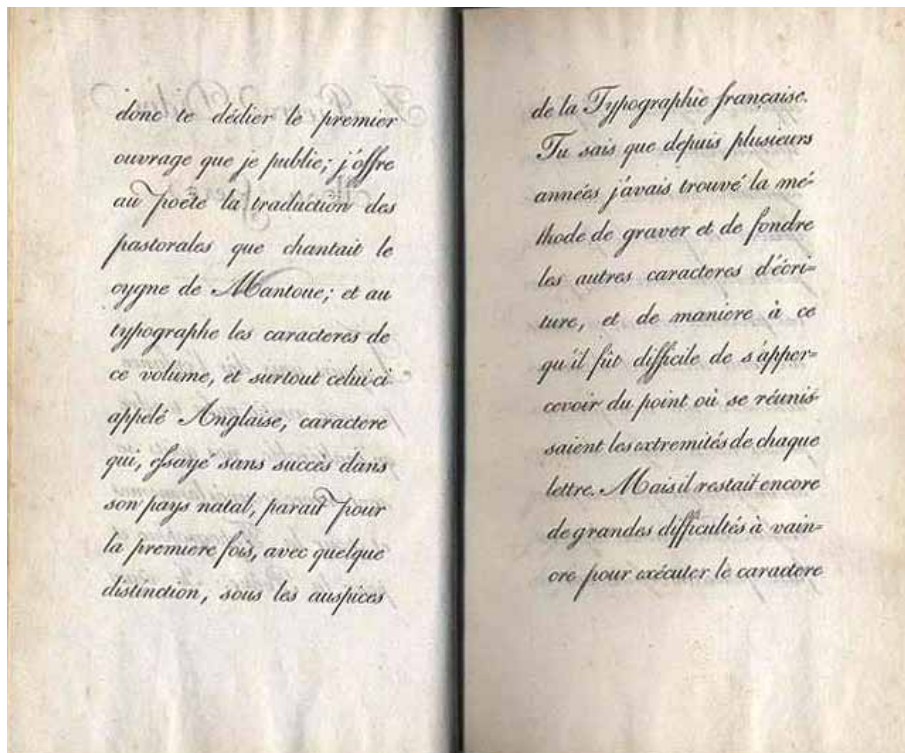 donc te dédier le premier
ouvrage que je publie; j'offre
au poete la traduction des
pastorales que chantait le
cygne de Mantoue; et au
typographe les caracteres de
ce volume, et surtout celui ci
appelé Anglaise, caractere
qui, essayé sans succès dans
son pays natal, parait pour
la premiere fois, avec quelque
distinction, sous les auspices
de la Typographie française.
Tu sais que depuis plusieurs
années j'avais trouvé la mé-
thode de graver et de fondre
les autres caracteres d'écri-
ture, et de maniere à ce
qu'il fût difficile de s'apper-
cevoir du point où se réunis-
saient les extremités de chaque
lettre. Mais il restait encore
de grandes difficultés à vain-
cre pour exécuter le caractere